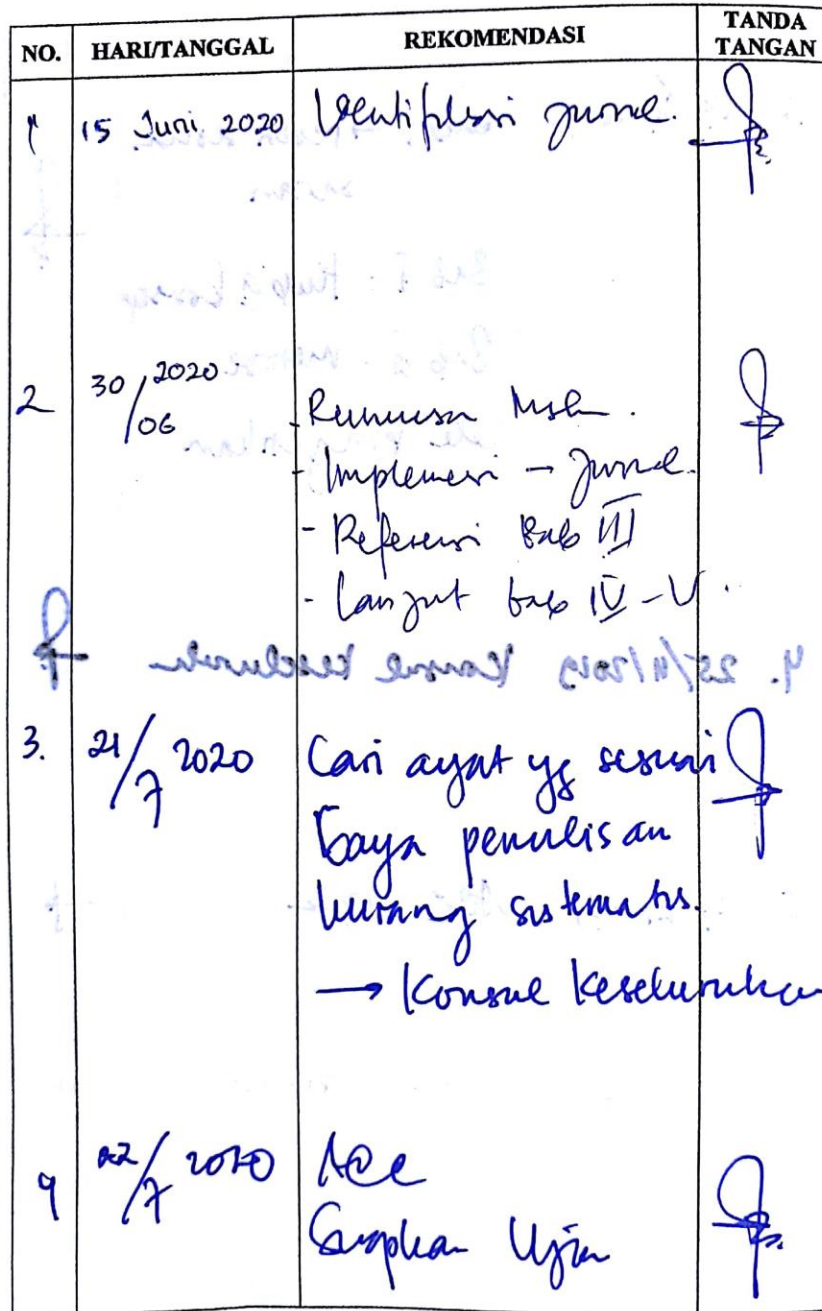 NO. HARI/TANGGAL REKOMENDASI TANDA TANGAN
1 15 Juni 2020 Identifikasi jurnal.
2 30/06 2020
- Rumusan Mslh.
- Implemensi → Jurnal.
- Referensi Bab III
- Lanjut bab IV - V.
3. 21/7 2020 Cari ayat yg sesuai
Gaya penulisan
kurang sistematis.
→ Konsul Keseluruhan
4 22/7 2020 Acc
Siapkan Ujian
4. 25/11/2019 Konsul keseluruhan